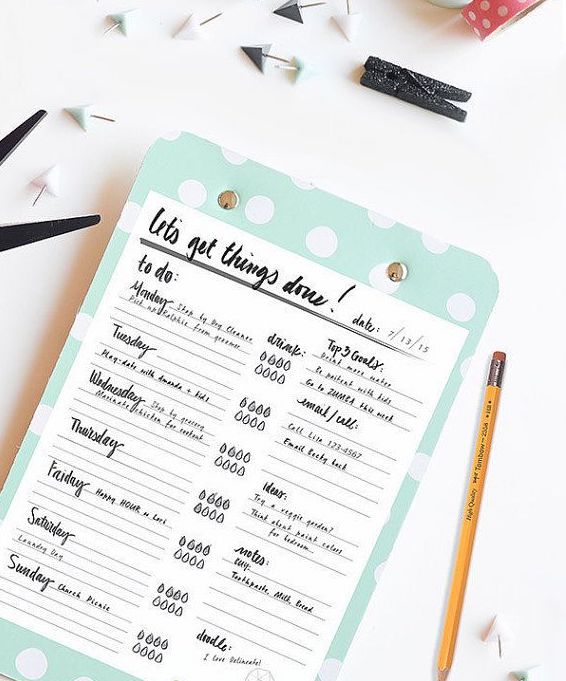 let's get things done!
to do:
date: 7/13/15
Monday Stop by Dry Cleaner
Pick up Ralphie from groomer
Tuesday
Play-date with Amanda + kids
Wednesday Stop by grocery
Marinate chicken for
Thursday
Friday Happy HOUR w/ Lori
Saturday
Laundry Day
Sunday Church Picnic
drink:
Top 3 Goals:
Drink more water
Be patient with kids
Go to ZUMBA this week
email/call:
Call Lisa 123-4567
Email Becky back
ideas:
Try a veggie garden?
Think about paint colors
for bedroom
notes:
Buy:
Toothpaste, Milk, Bread
doodle:
I love Delineate!
High Quality Tombow 2558 HB